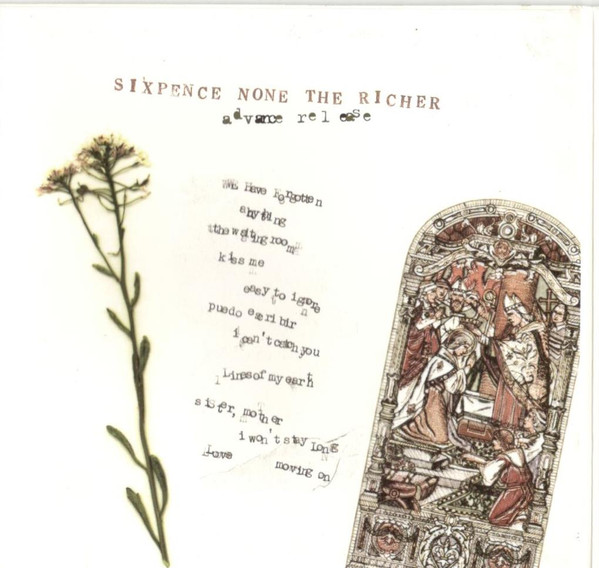 SIXPENCE NONE THE RICHER
advance release
We Have Forgotten
anything
the waiting room
kiss me
easy to ignore
puedo escribir
i can't catch you
Lines of my earth
sister, mother
i won't stay long
Love
moving on